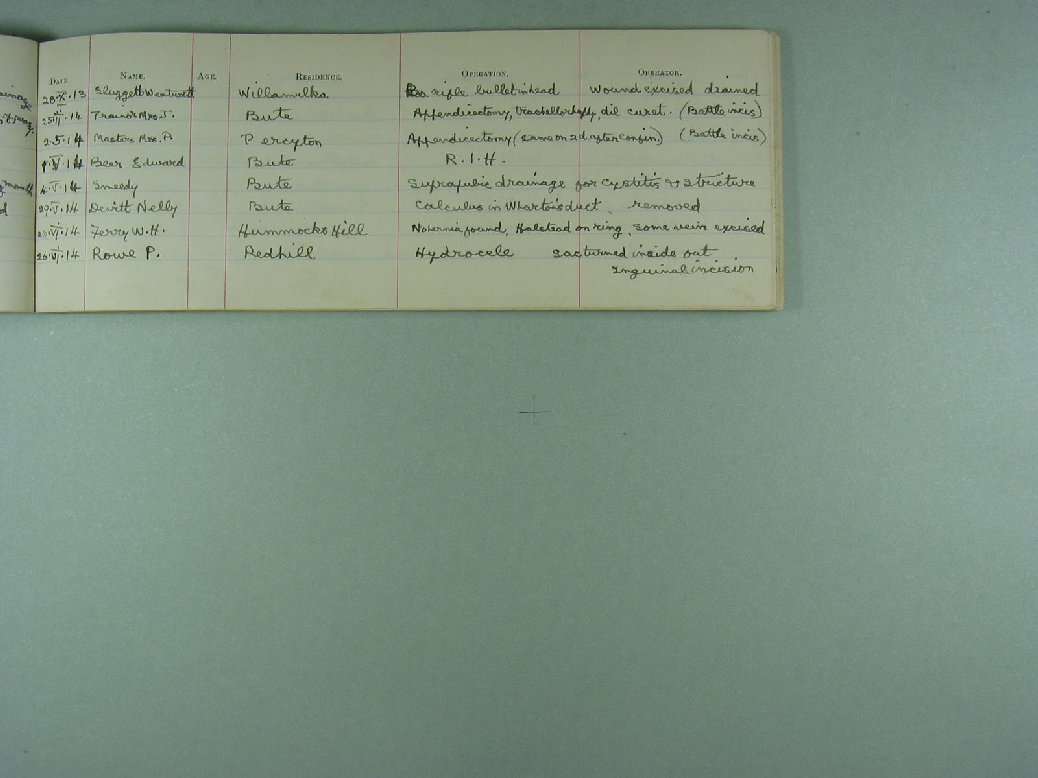 DATE. NAME. AGE. RESIDENCE. OPERATION. OPERATOR.
28·X·13 Sluggett Wentworth Willamulka rifle bullet in head wound excised drained
14 Trainor Mrs. J. Bute Appendicectomy, trachellorhaphy, dil curet. (Battle incis)
2·5·14 Masters Mrs. P. Percyton Appendicectomy (came on 2d after confin.) (Battle incis)
V·14 Bear Edward Bute R.I.H.
4·V·14 Smeedy Bute Suprapubic drainage for cystitis & stricture
29·V·14 Devitt Nelly Bute Calculus in Wharton's duct, removed
VI·14 Ferry W.H. Hummocks Hill No hernia found, Halstead on ring, some vein excised
26·VI·14 Rowe P. Redhill Hydrocele sac turned inside out
inguinal incision